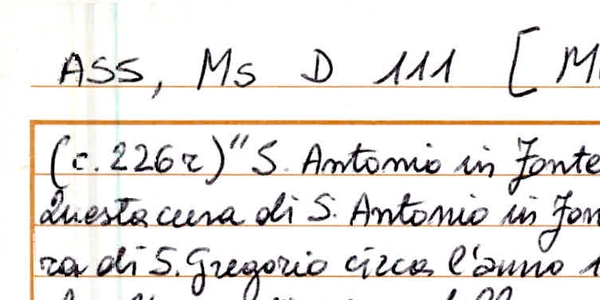 ASS, Ms D 111 [
(c. 226r) "S. Antonio in Fonte
Questa cura di S. Antonio in Fon
ra di S. Gregorio circa l'anno 1